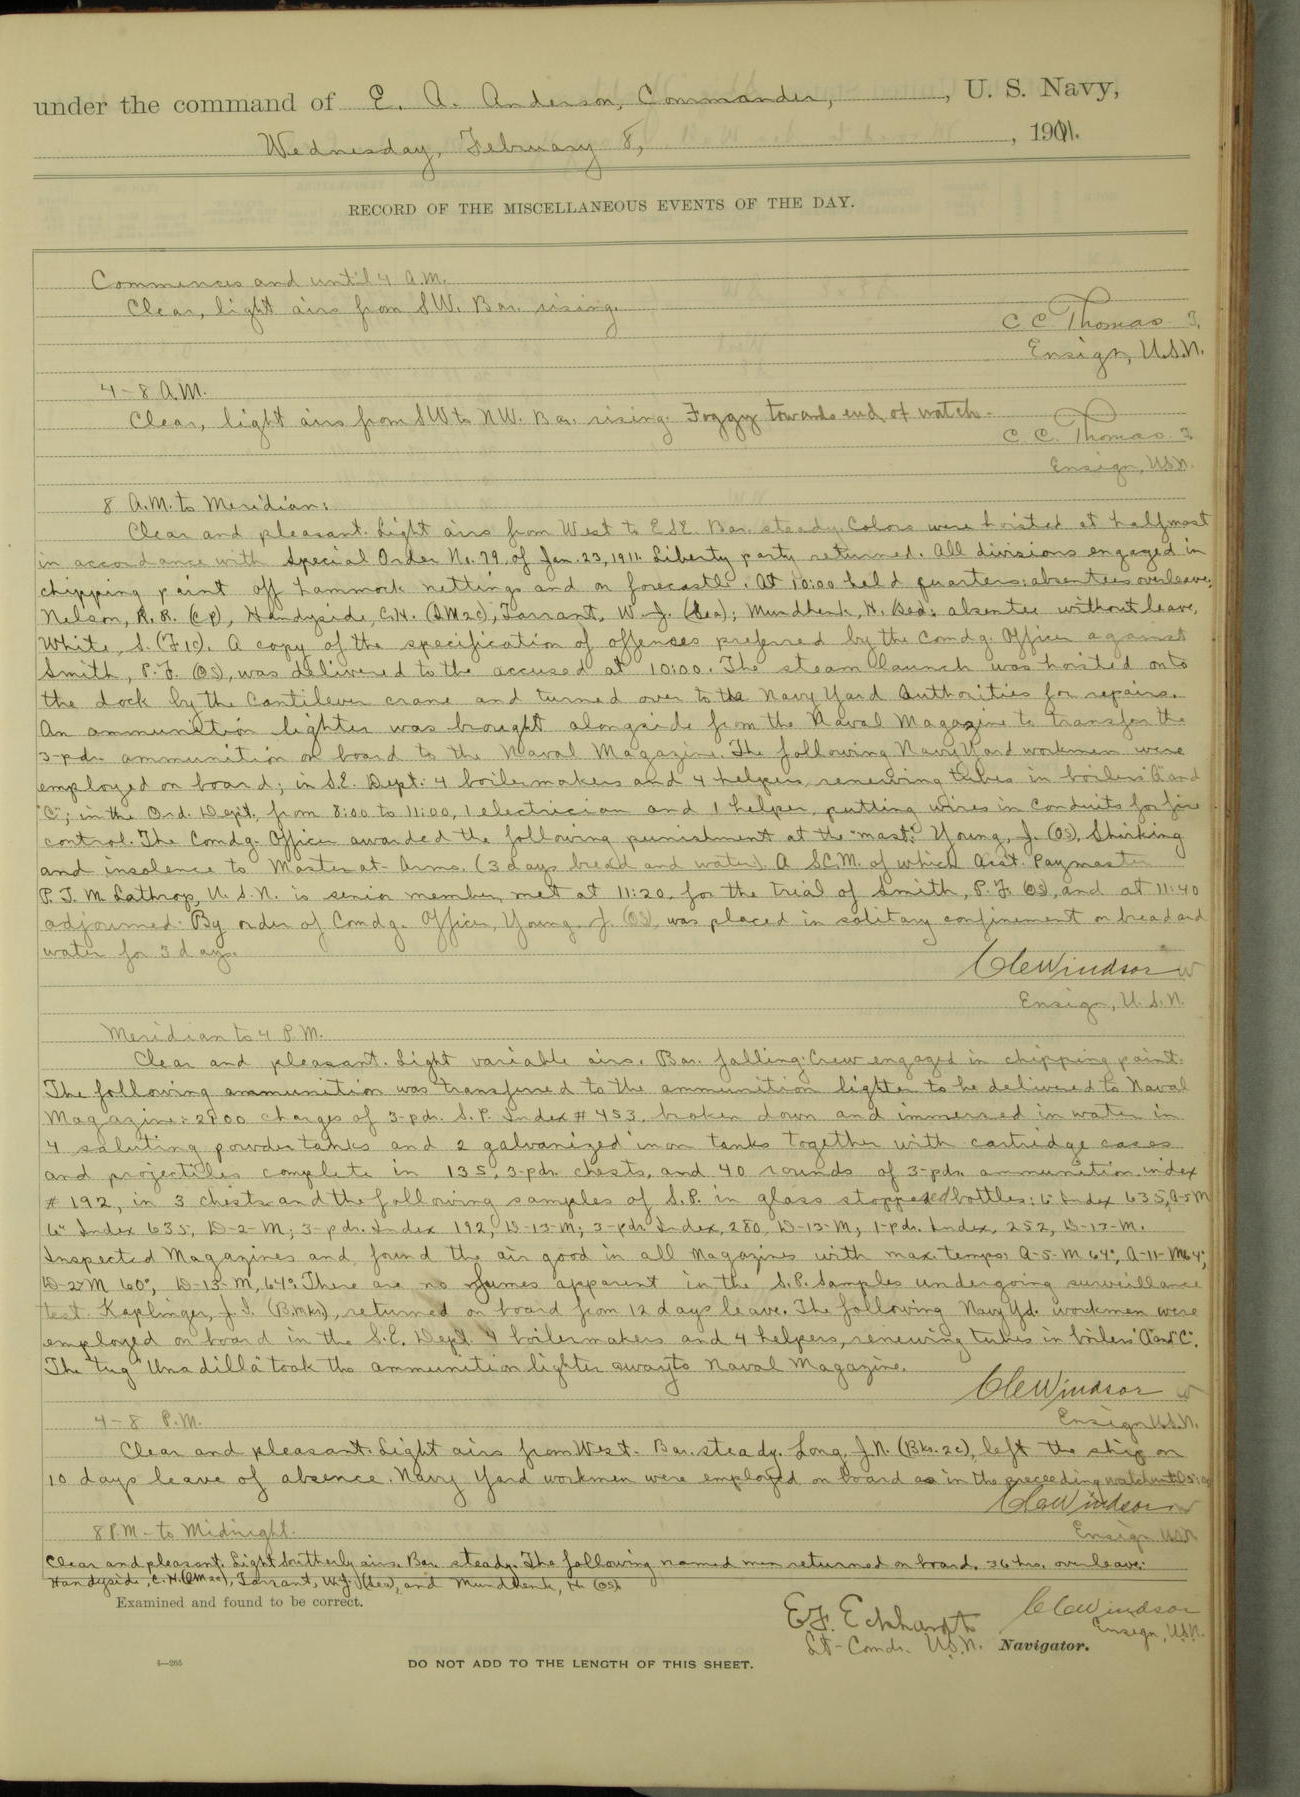 under the command of E. A. Anderson, Commander, , U. S. Navy,
Wednesday, February 8, , 1911.
RECORD OF THE MISCELLANEOUS EVENTS OF THE DAY.
Commences and until 4 A.M.
Clear, light airs from SW. Bar. rising.
C C Thomas
Ensign, U.S.N.
4-8 A.M.
Clear, light airs from SW to NW. Bar. rising. Foggy towards end of watch.
C. C. Thomas
Ensign, USN.
8 A.M. to Meridian:
Clear and pleasant. Light airs from West to ESE. Bar. steady. Colors were hoisted at half mast
in accordance with Special Order No. 79, of Jan. 23, 1911. Liberty party returned. All divisions engaged in
chipping paint off hammock nettings and on forecastle. At 10:00 held quarters: absentees overleave;
Nelson, R. R. (CP), Handyside, C.H. (SM2c), Tarrant, W. J. (Sea); Mundhenk, H. absentee without leave,
White, S. (F1c). A copy of the specification of offences preferred by the Comdg. Officer against
Smith, P. F. (OS), was delivered to the accused at 10:00. The steam launch was hoisted onto
the dock by the Cantilever crane and turned over to the Navy Yard Authorities for repairs.
An ammunition lighter was brought alongside from the Naval Magazine to transfer the
3-pdr. ammunition on board to the Naval Magazine. The following Navy Yard workmen were
employed on board; in S.E. Dept: 4 boilermakers and 4 helpers, renewing tubes in boilers "A" and
"C"; in the Ord. Dept. from 8:00 to 11:00, 1 electrician and 1 helper, putting wires in conduits for fire
control. The Comdg. Officer awarded the following punishment at the "mast": Young, J. (OS), Shirking
and insolence to Master-at-Arms. (3 days bread and water). A S.C.M. of which Asst. Paymaster
P. T. M. Lathrop, U. S. N. is senior member, met at 11:20, for the trial of Smith, P. F. (OS), and at 11:40
adjourned. By order of Comdg. Officer, Young, J. (OS), was placed in solitary confinement on bread and
water for 3 days.
C C Windsor
Ensign, U. S. N.
Meridian to 4 P.M.
Clear and pleasant. Light variable airs. Bar. falling. Crew engaged in chipping paint.
The following ammunition was transferred to the ammunition lighter to be delivered to Naval
Magazine: charges of 3-pdr. S.P. Index # 453, broken down and immersed in water in
4 saluting powder tanks and 2 galvanized iron tanks together with cartridge cases
and projectiles complete in 135, 3-pdr. chests, and 40 rounds of 3-pdr. ammunition index
# 192, in 3 chests and the following samples of S.P. in glass stoppered bottles: 6" Index 635, A-5-M
6" Index 635, D-2-M; 3-pdr. Index 192, D-13-M; 3-pdr. Index, 280, D-13-M, 1-pdr. Index, 252, D-13-M.
Inspected Magazines and found the air good in all Magazines with max. temps: A-5-M 64°, A-11-M 64°,
D-2-M 60°, D-13-M, 64°. There are no fumes apparent in the S.P. Samples undergoing surveillance
test. Kaplinger, J. I. (Bmkr), returned on board from 12 days leave. The following Navy Yd. workmen were
employed on board in the S.E. Dept. 4 boilermakers and 4 helpers, renewing tubes in boilers "A" and "C".
The tug "Unadilla" took the ammunition lighter away to Naval Magazine.
C C Windsor
Ensign U.S.N.
4-8 P.M.
Clear and pleasant. Light airs from West. Bar. steady. Long, J. N. (Bkr. 2c), left the ship on
10 days leave of absence. Navy Yard workmen were employed on board as in the preceeding watch until
C C Windsor
Ensign USN
8 P.M. to Midnight.
Clear and pleasant. Light Southerly airs. Bar. steady. The following named men returned on board, 36 hrs. overleave:
Handyside, C. H. (SM2c), Tarrant, W. J. (Sea), and Mundhenk, H. (OS).
Examined and found to be correct.
C C Windsor
Ensign, U.S.N.
E. F. Eckhardt
Lt-Comdr. U.S.N. Navigator.
4—265
DO NOT ADD TO THE LENGTH OF THIS SHEET.